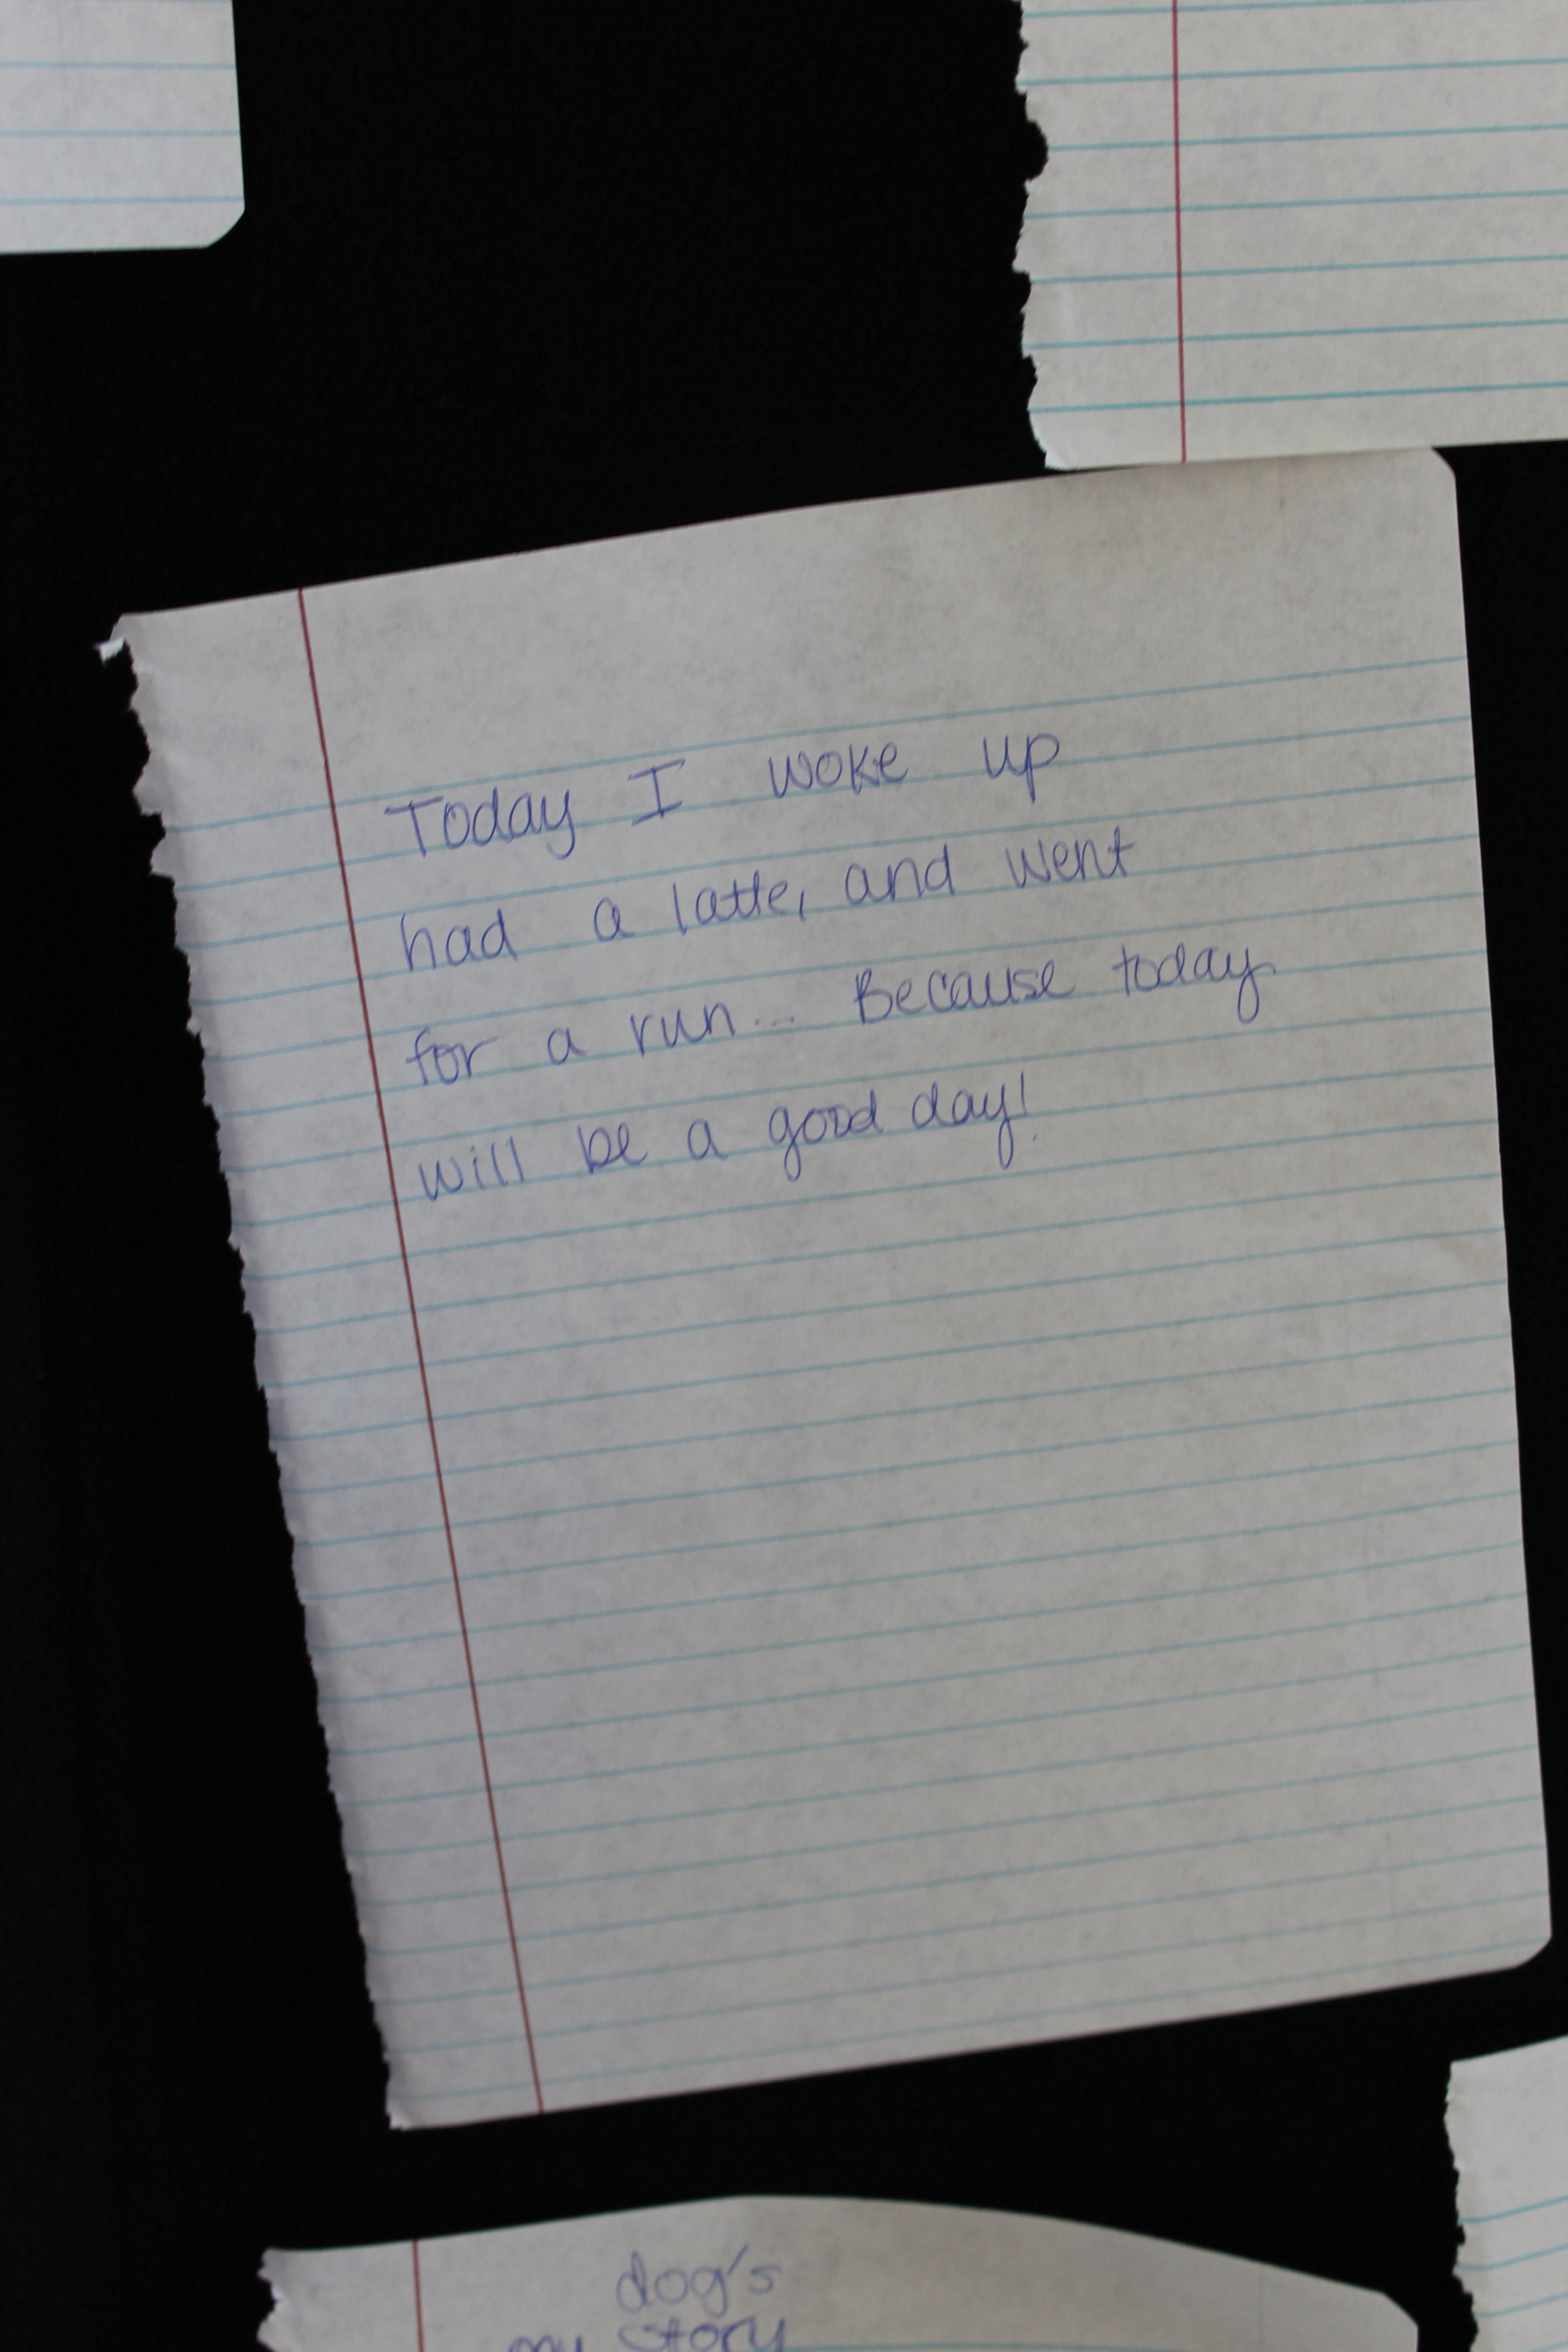 Today I woke up
had a latte, and went
for a run... Because today
will be a good day!
dog's
my story